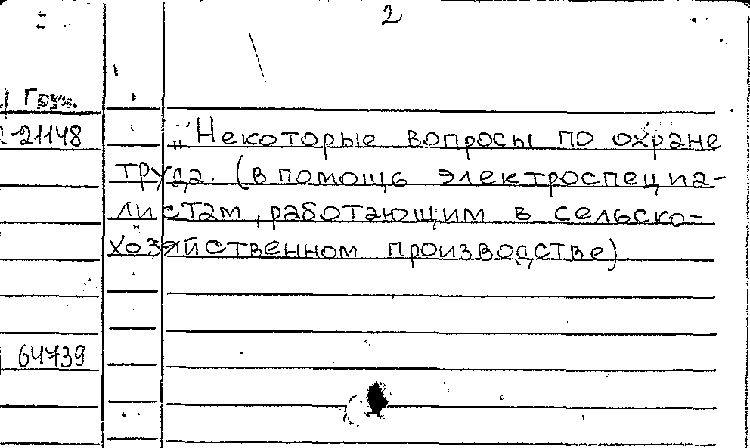 2
Груз.
21148
„Некоторые вопросы по охране
труда. (в помощь электроспециа-
листам, работающим в сельско-
хозяйственном производстве)
64739